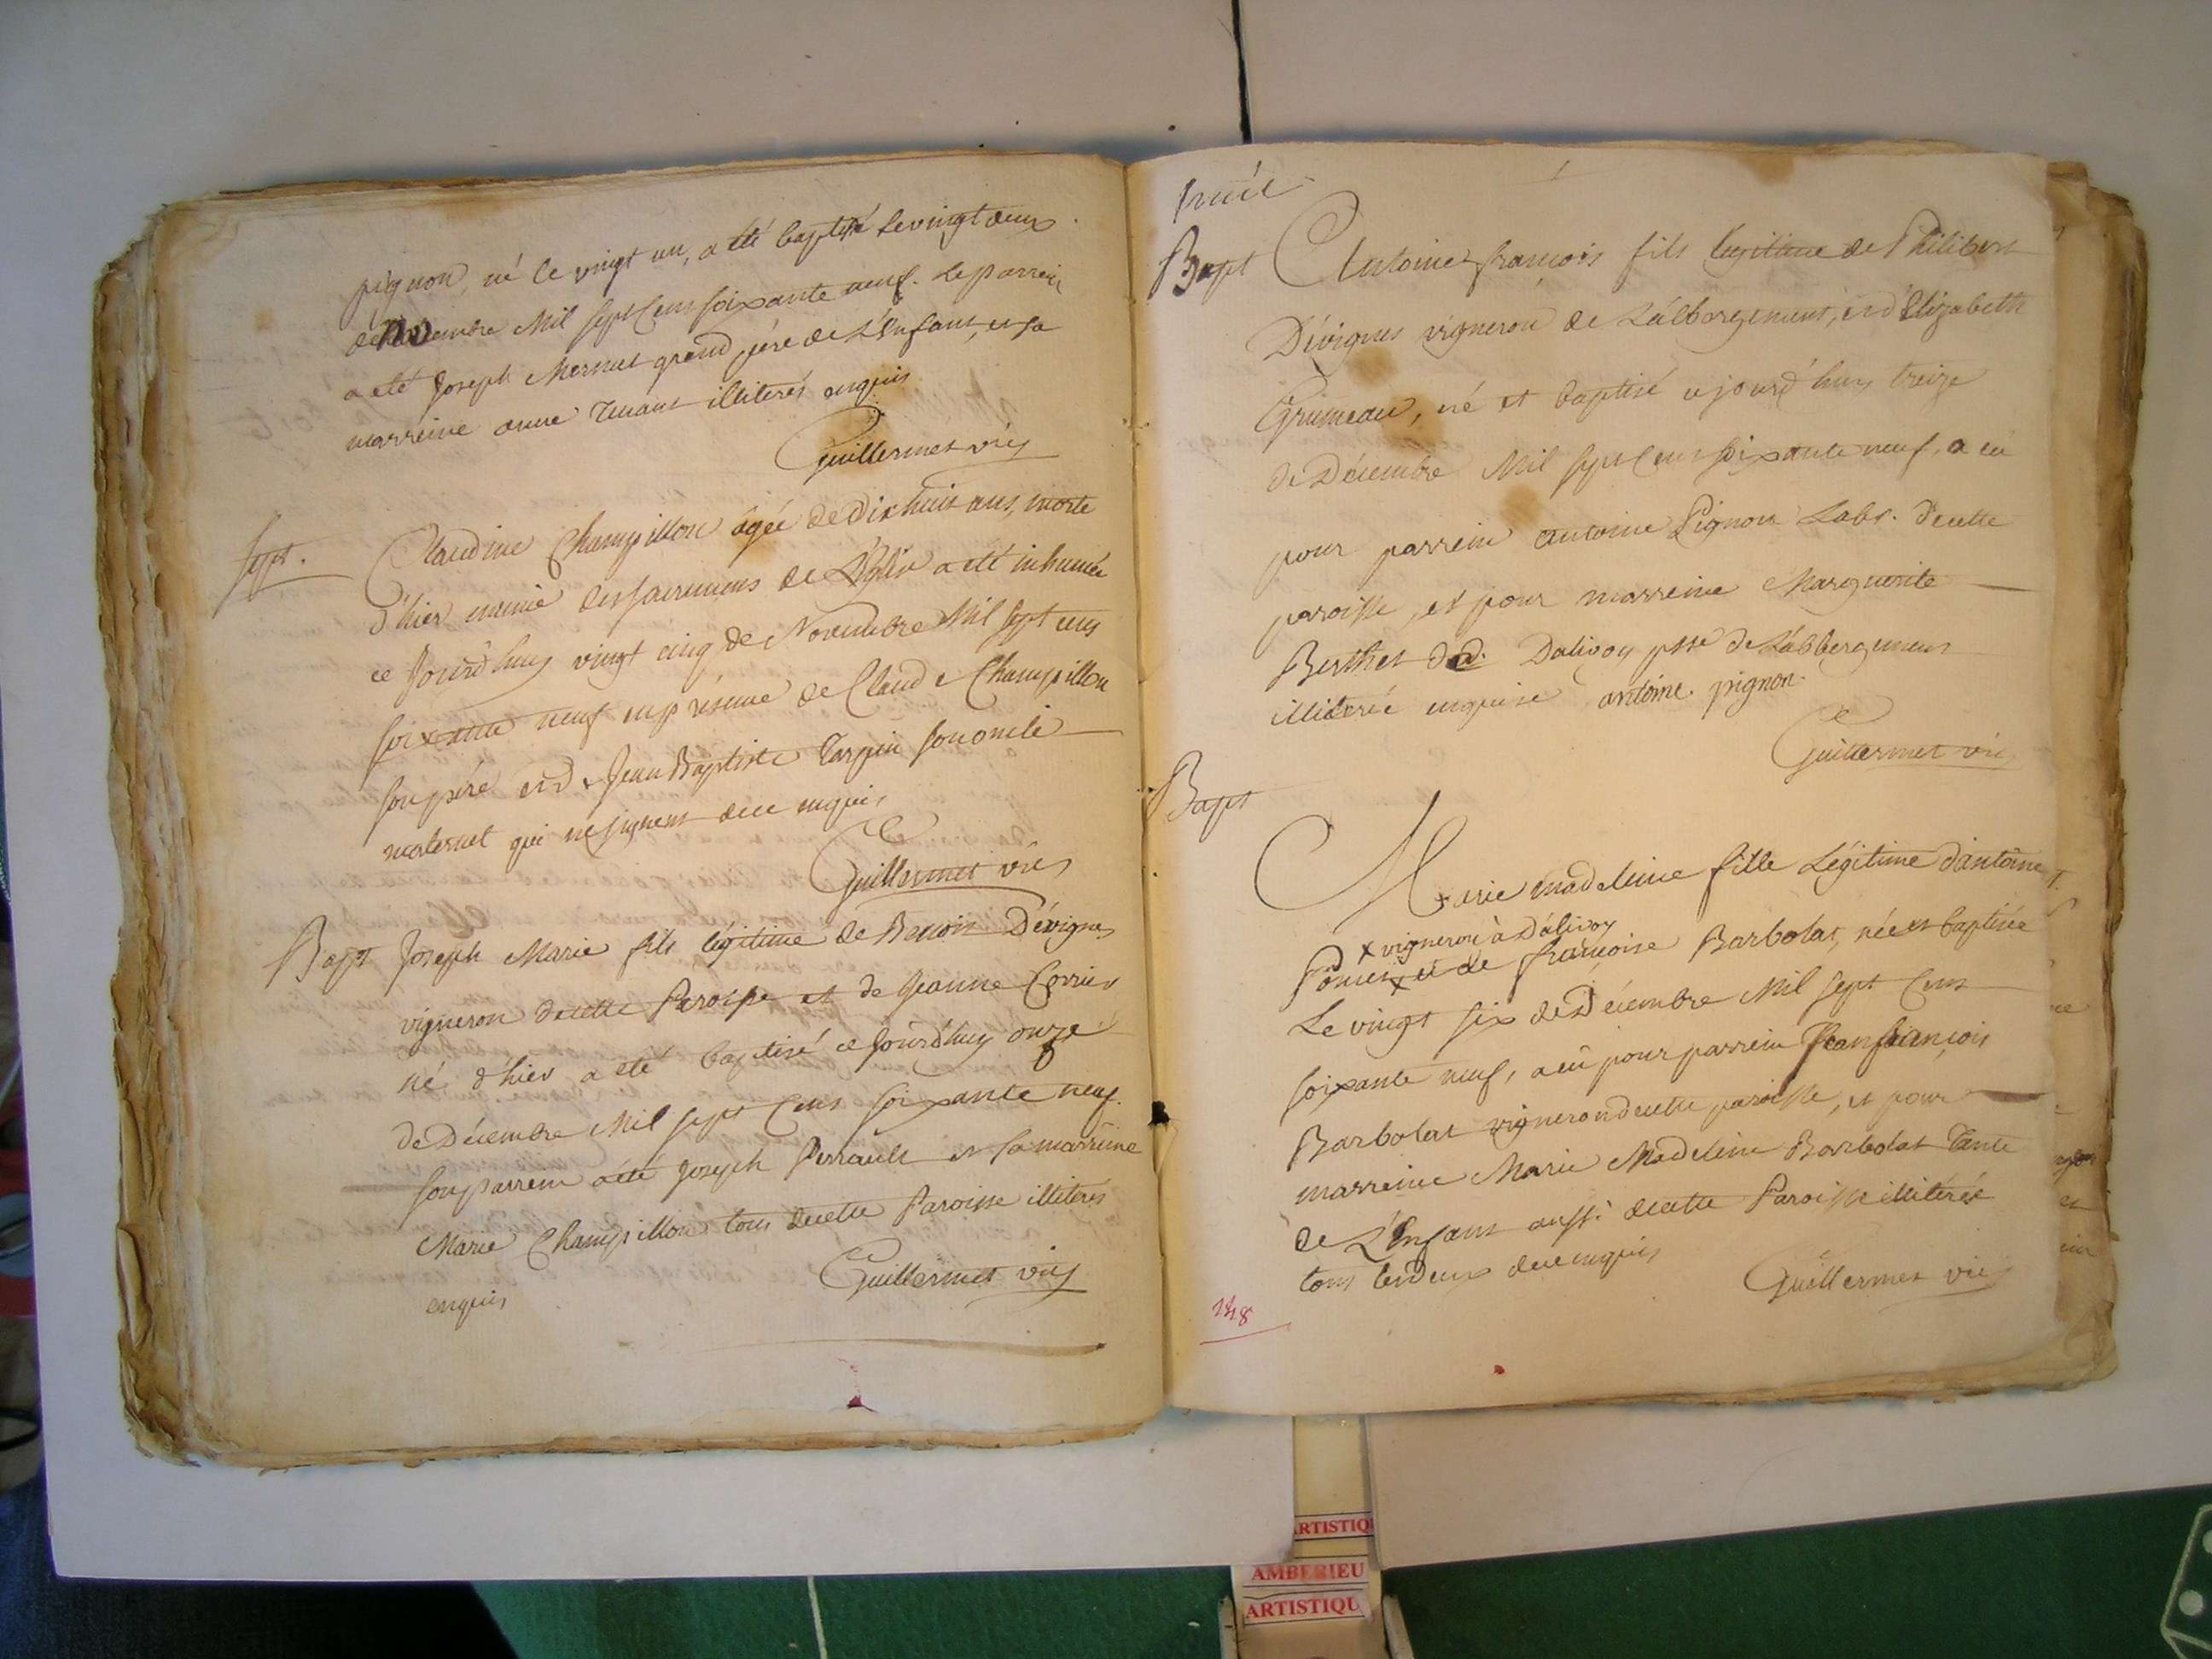 pignon, né le vingt un, a été baptisé le vingt deux
de novembre Mil sept cens soixante neuf. Le parrein
a été Joseph Mornet grand père de L'Enfant, et sa
marreine anne illiterés enquis
Guillermet vic
Sept.
Claudine Champillon âgée de dix huit ans, morte
d'hier munie des sacremens de L'Eglise a été inhumée
ce Jourd'huy vingt cinq de Novembre Mil sept cens
soixante neuf en présence de Claude Champillon
son père et de Jean Baptiste Tarpin son oncle
maternel qui ne signent de ce enquis
Guillermet vic
Bapt Joseph Marie fils légitime de Benoit Dévignes
vigneron de cette Paroisse et de Jeanne Corrier
né d'hier a été baptisé ce Jourd'huy onze
de Décembre Mil sept Cens soixante neuf.
son parrein a été Joseph Perrault et sa marreine
Marie Champillon tous de cette Paroisse illiterés
enquis
Guillermet vic
Bapt Antoine françois fils légitime de Philibert
Dévignes vigneron de L'albergement, et d'Elizabeth
Grumeau, né et baptisé ajourd'huy treize
de Décembre Mil sept Cens soixante neuf, a eu
pour parrein antoine Pignon Labr. de cette
paroisse, et pour marreine Marguerite
Berthet d. Dalivoy psse de L'abbergement
illiterée enquise antoine pignon
Guillermet vic
Bapt
Marie madeleine fille Légitime d'antoine
x vigneron à Dalivoy
Poncet x et de françoise Barbolat, née et baptisée
Le vingt six de Décembre Mil sept Cens
soixante neuf, a eü pour parrein Jean françois
Barbolat vigneron de cette paroisse, et pour
marreine Marie Madeleine Barbolat Tante
de L'Enfant aussi de cette Paroisse illiterés
tous les deux de ce enquis
Guillermet vic
148
ARTISTIQ
AMBERIEU
ARTISTIQU